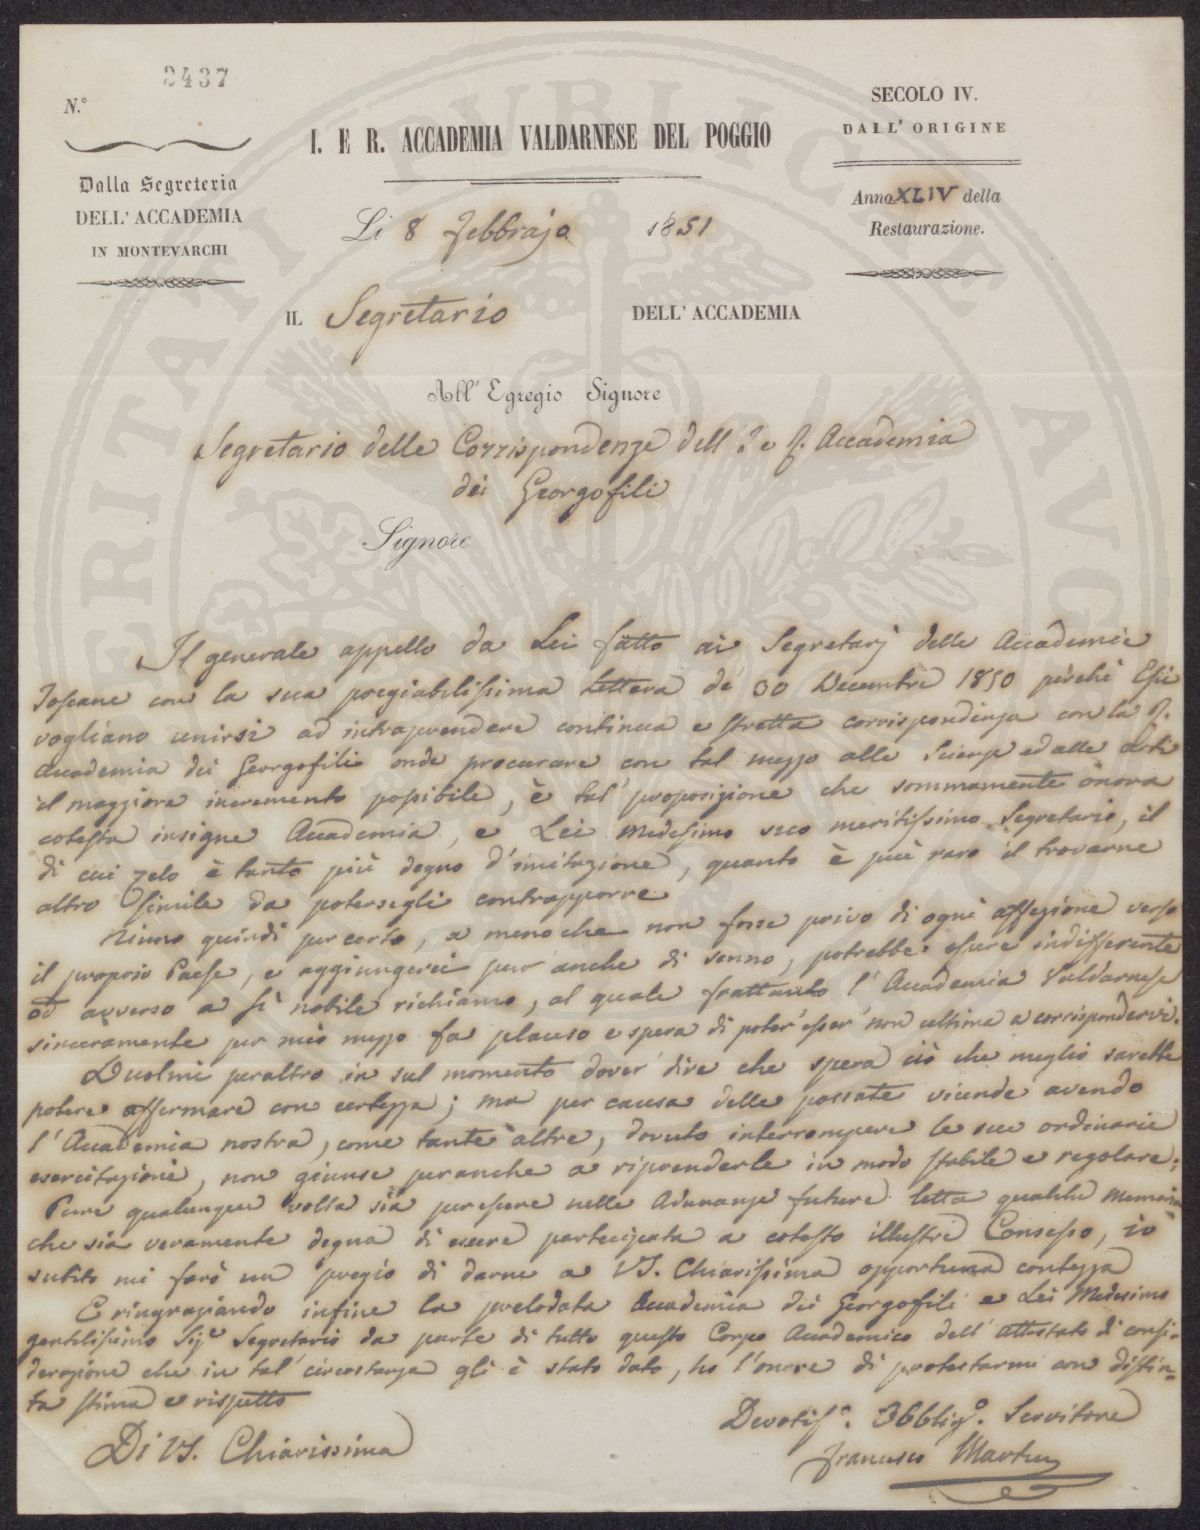 2437
N.°
SECOLO IV.
DALL' ORIGINE
I. E R. ACCADEMIA VALDARNESE DEL POGGIO
Dalla Segreteria
DELL' ACCADEMIA
IN MONTEVARCHI
Anno XLIV della
Restaurazione.
Li 8 Febbrajo 1851
IL Segretario DELL' ACCADEMIA
All' Egregio Signore
Segretario delle Corrispondenze dell' I. e R. Accademia
dei Georgofili
Signore
Il generale appello da Lei fatto ai Segretarj delle Accademie
Toscane con la sua pregiabilissima Lettera de' 30 Decembre 1850 perchè Esse
vogliano unirsi ad intraprendere continua e stretta corrispondenza con la R.
Accademia dei Georgofili onde procurare con tal mezzo alle Scienze ed alle Arti
il maggiore incremento possibile, è tal' proposizione che sommamente onora
cotesta insigne Accademia, e Lei Medesimo suo meritissimo Segretario, il
di cui zelo è tanto più degno d'imitazione, quanto è più raro il trovarne
altro simile da potersegli contrapporre
Niuno quindi per certo, a meno che non fosse privo di ogni affezione verso
il proprio Paese, e aggiungerei pur anche di senno, potrebbe essere indifferente
od avverso a sì nobile richiamo, al quale frattanto l' Accademia Valdarnese
sinceramente per mio mezzo fa plauso e spera di poter' esser' non ultima a corrispondervi.
Duolmi peraltro in sul momento dover' dire che spera ciò che meglio sarebbe
potere affermare con certezza; ma per causa delle passate vicende avendo
l'Accademia nostra, come tante altre, dovuto interrompere le sue ordinarie
esercitazioni, non giunse per anche a riprenderle in modo stabile e regolare;
Pure qualunque volta sia per essere nelle Adunanze future letta qualche Memoria
che sia veramente degna di essere partecipata a cotesto illustre Consesso, io
subito mi farò un pregio di darne a VS. Chiarissima opportuna contezza
E ringraziando infine la prelodata Accademia dei Georgofili e Lei Medesimo
gentilissimo Sig.e Segretario da parte di tutto questo Corpo Accademico dell' attestato di consi-
derazione che in tal' circostanza gli è stato dato, ho l'onore di protestarmi con distin-
ta stima e rispetto
Di VS. Chiarissima
Devotis.o Obblig.o Servitore
Francesco